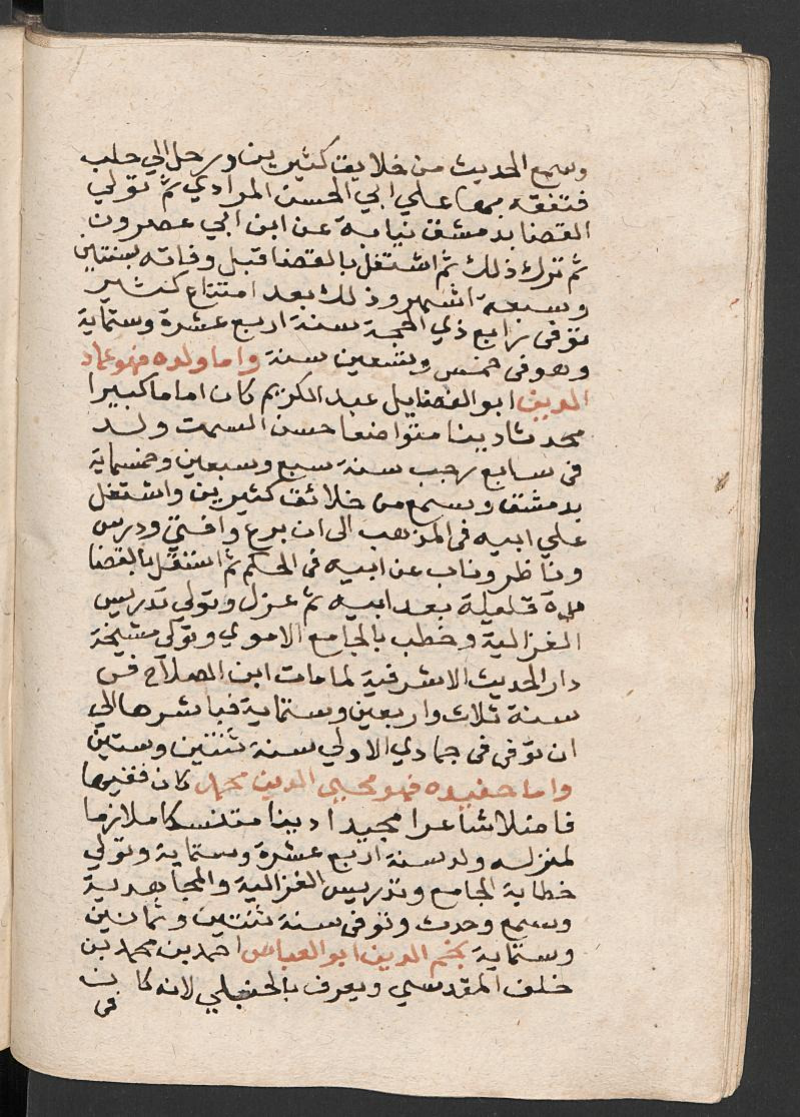 وسمع الحديث من خلايق كثيرين ورحل الي حلب
فتفقه بها علي ابي الحسن المرادي ثم تولي
القضا بدمشق نيابة عن ابن ابي عصرون
ثم ترك ذلك ثم اشتغل بالقضا قبل وفاته بسنتين
وسبعة اشهر وذلك بعد امتناع كثير
توفى رابع ذي الحجة سنة اربع عشرة وستماية
وهو فى خمس وتسعين سنة واما ولده فهو عماد
الدين ابو الفضايل عبد الكريم كان اماما كبيرا
محدثا دينا متواضعا حسن السمت ولد
فى سابع رجب سنة سبع وسبعين وخمسماية
بدمشق وسمع من خلائق كثيرين واشتغل
علي ابيه فى المذهب الى ان برع وافتي ودرس
وناظر وناب عن ابيه فى الحكم ثم استقل بالقضا
مدة قليلة بعد ابيه ثم عزل وتولي تدريس
الغزالية وخطب بالجامع الاموي وتولى مشيخة
دار الحديث الاشرفية لما مات ابن الصلاح فى
سنة ثلاث واربعين وستماية فباشرها الي
ان توفى فى جمادي الاولي سنة ثنتين وستين
واما حفيده فهو محيي الدين محمد كان فقيها
فاضلا شاعرا مجيدا دينا متنسكا ملازما
لمنزله ولد سنة اربع عشرة وستماية وتولي
خطابة الجامع وتدريس الغزالية والمجاهدية
وسمع وحدث وتوفى سنة ثنتين وثمانين
وستماية نجم الدين ابو العباس احمد بن محمد بن
خلف المقدسي ويعرف بالحنبلي لانه كان
فى